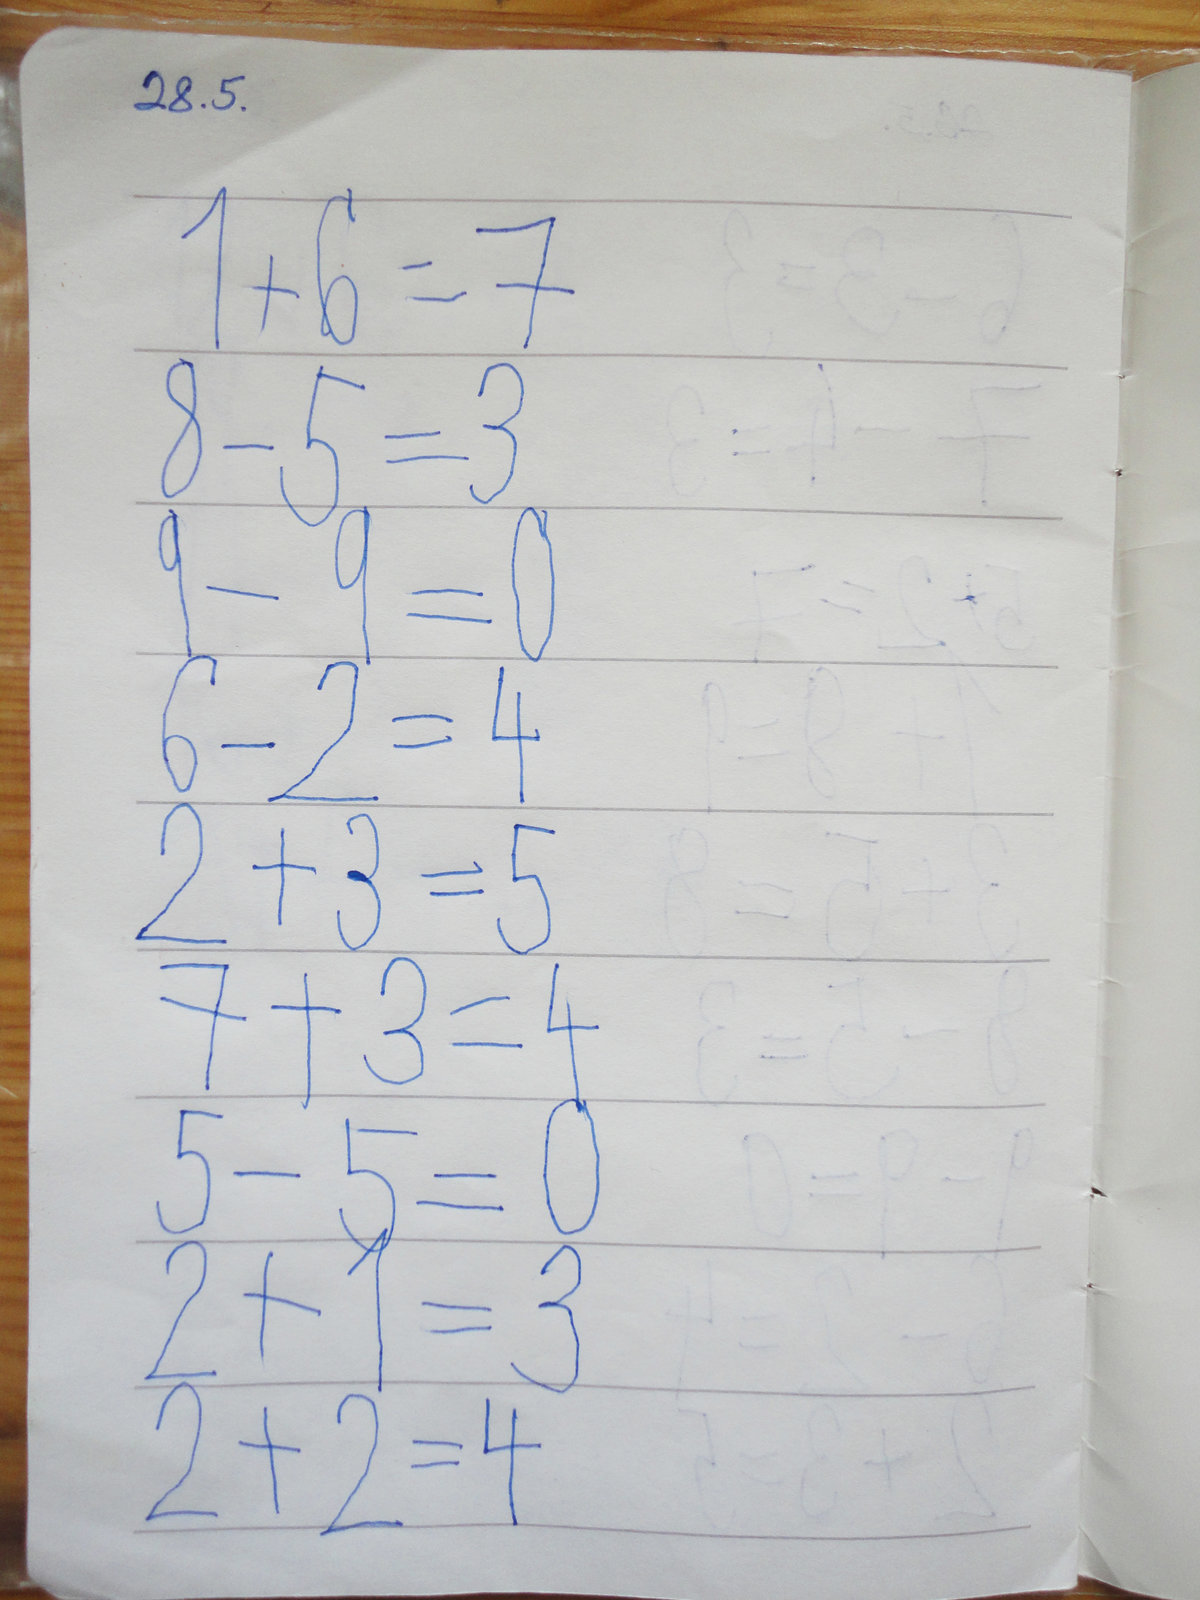 28.5.
1+6=7
8-5=3
9-9=0
6-2=4
2+3=5
7+3=4
5-5=0
2+1=3
2+2=4